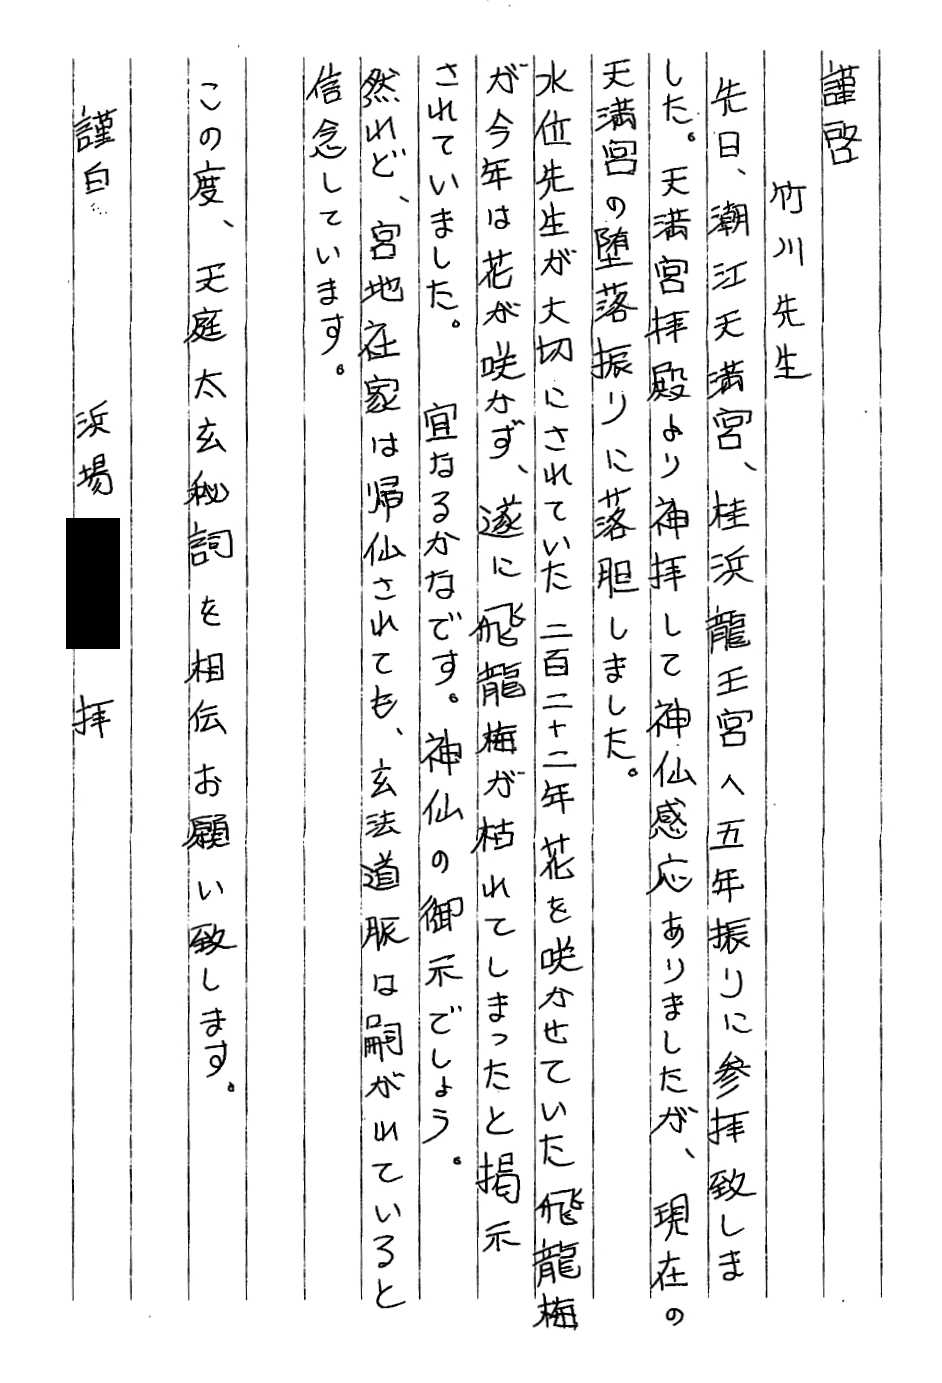 謹啓
竹川先生
先日、潮江天満宮、桂浜龍王宮へ五年振りに参拝致しま
した。天満宮拝殿より神拝して神仙感応ありましたが、現在の
天満宮の堕落振りに落胆しました。
水位先生が大切にされていた二百二十二年花を咲かせていた飛龍梅
が今年は花が咲かず、遂に飛龍梅が枯れてしまったと掲示
されていました。 宜なるかなです。神仙の御示でしょう。
然れど、宮地在家は帰仙されても、玄法道脈は嗣がれていると
信念しています。
この度、天庭太玄秘詞を相伝お願い致します。
謹白 浜場 拝